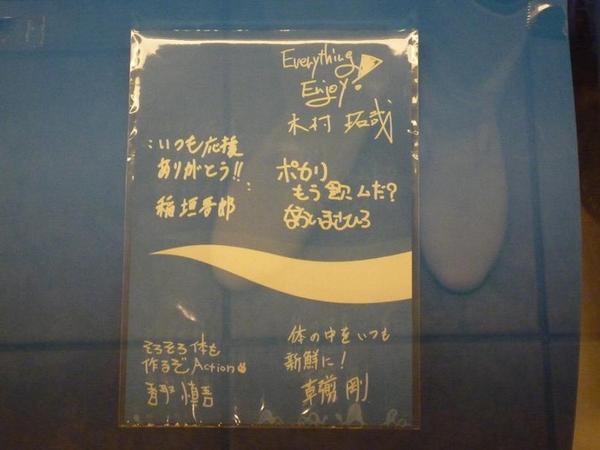 Everything
Enjoy!
木村 拓哉
いつも応援
ありがとう!!
稲垣吾郎
ポカリ
もう飲ムだ?
なかいまさひろ
そろそろ体も
作るぞAction
香取 慎吾
体の中をいつも
新鮮に!
草彅 剛